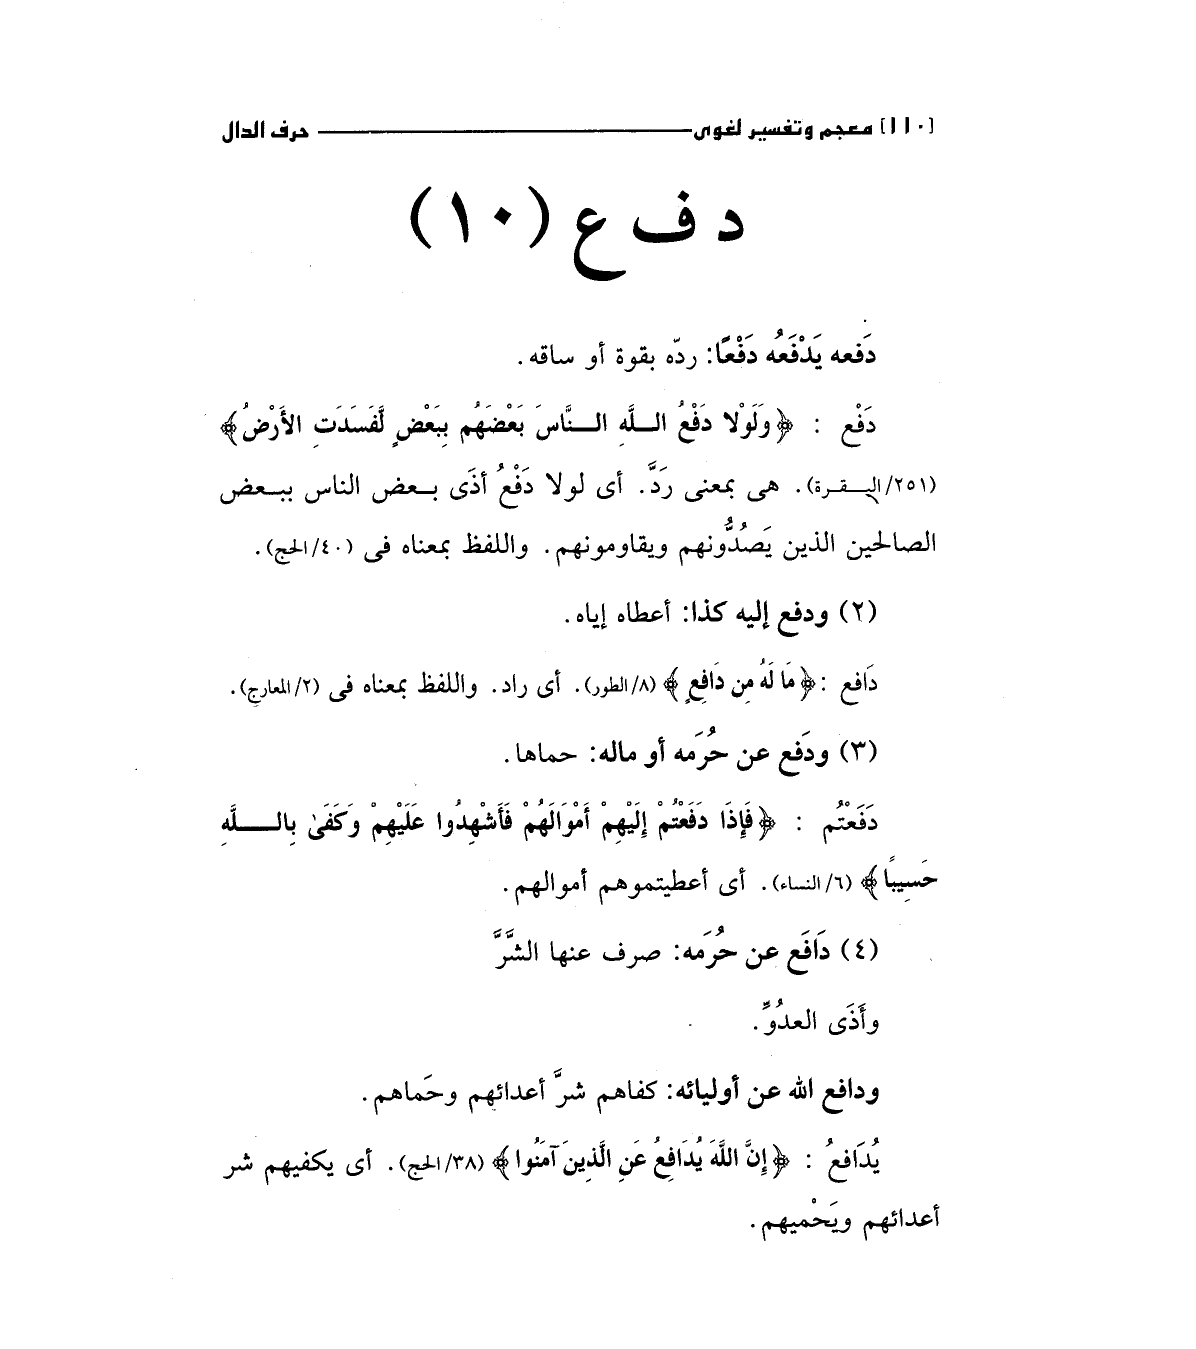 [١١٠] معجم وتفسير لغوى — حرف الدال
د ف ع (١٠)
دَفعه يَدْفَعُه دَفْعًا: ردّه بقوة أو ساقه.
دَفْع : ﴿وَلَوْلا دَفْعُ اللَّهِ النَّاسَ بَعْضَهُم بِبَعْضٍ لَّفَسَدَتِ الأَرْضُ﴾
(٢٥١/البقرة). هى بمعنى رَدَّ. أى لولا دَفْعُ أذَى بعض الناس ببعض
الصالحين الذين يَصُدُّونهم ويقاومونهم. واللفظ بمعناه فى (٤٠/الحج).
(٢) ودفع إليه كذا: أعطاه إياه.
دَافع :﴿مَا لَهُ مِن دَافِعٍ﴾ (٨/الطور). أى راد. واللفظ بمعناه فى (٢/المعارج).
(٣) ودَفع عن حُرَمه أو ماله: حماها.
دَفَعْتُم : ﴿فَإِذَا دَفَعْتُمْ إِلَيْهِمْ أَمْوَالَهُمْ فَأَشْهِدُوا عَلَيْهِمْ وَكَفَىٰ بِاللَّهِ
حَسِيبًا﴾ (٦/النساء). أى أعطيتموهم أموالهم.
(٤) دَافَع عن حُرَمه: صرف عنها الشَّرَّ
وأَذَى العدُوِّ.
ودافع الله عن أوليائه: كفاهم شرَّ أعدائهم وحَماهم.
يُدَافعُ : ﴿إِنَّ اللَّهَ يُدَافِعُ عَنِ الَّذِينَ آمَنُوا﴾ (٣٨/الحج). أى يكفيهم شر
أعدائهم ويَحْميهم.